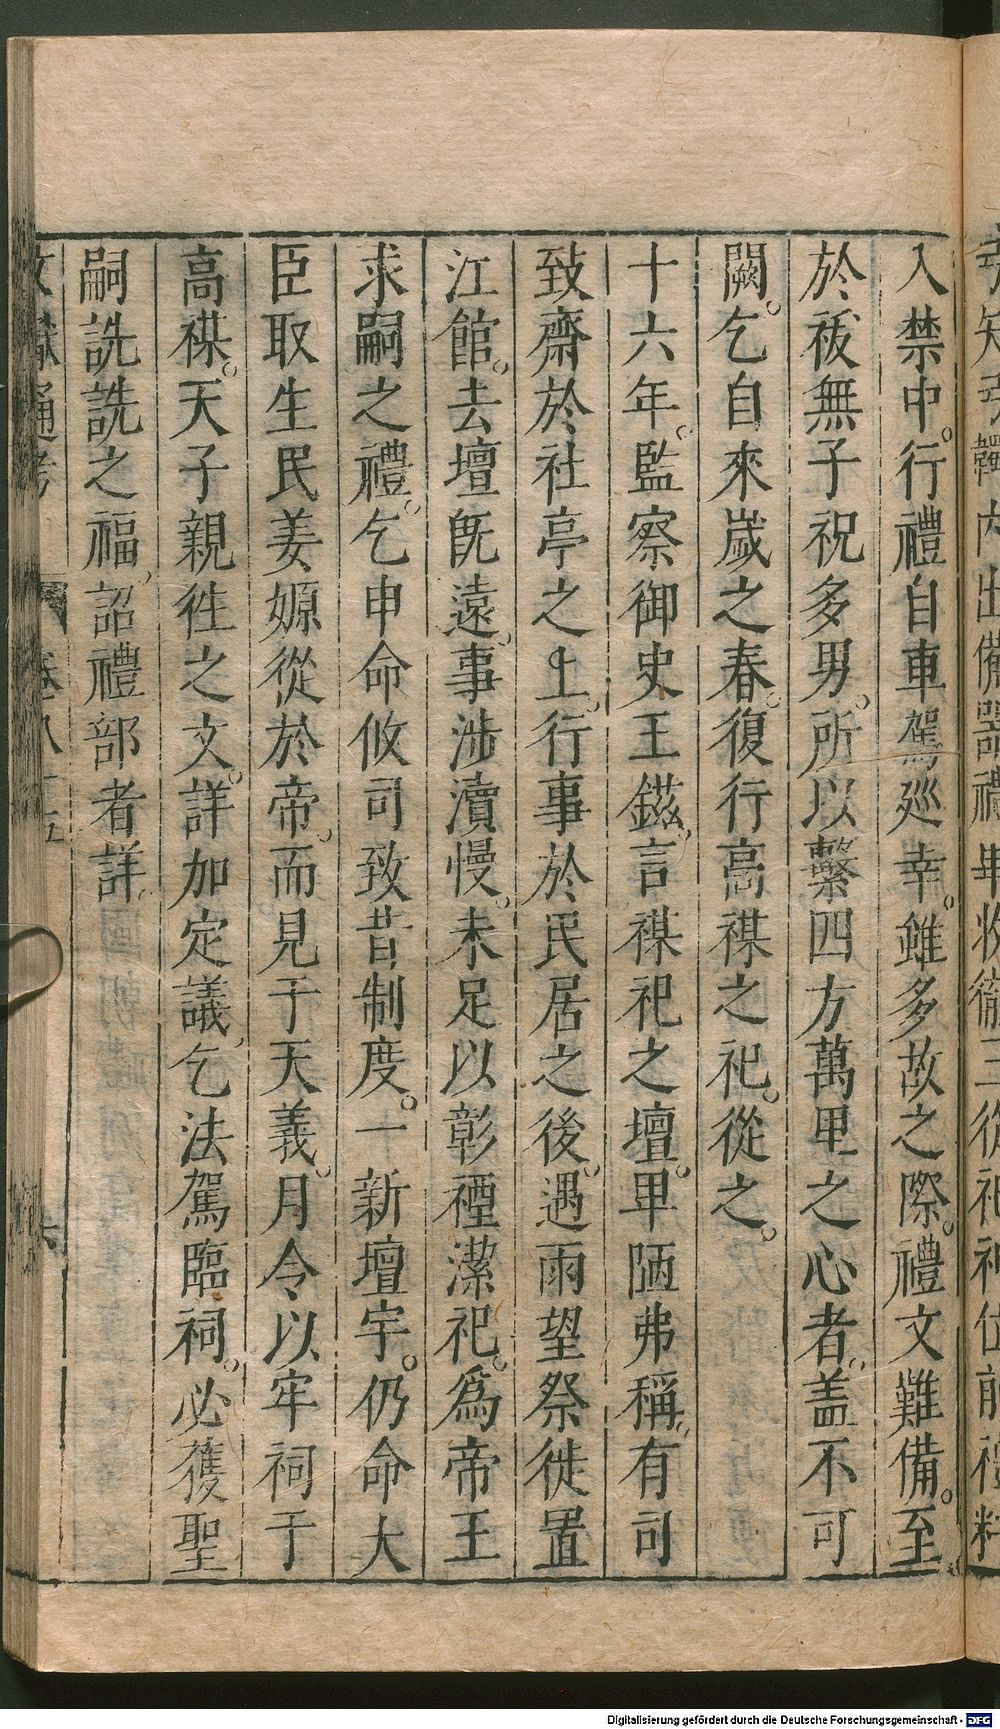 入禁中。行禮自車駕廵幸。雖多故之際。禮文難備。至
於祓無子祝多男。所以繫四方萬里之心者。盖不可
闕。乞自來嵗之春。復行高禖之祀。從之。
十六年。監察御史王鎡。言禖祀之壇。卑陋弗稱。有司
致齋於社亭之上。行事於民居之後。遇雨望祭徙置
江館。去壇旣遠。事渉瀆慢。未足以彰禋潔祀。爲帝王
求嗣之禮。乞申命攸司致昔制度。一新壇宇。仍命大
臣取生民姜嫄從於帝。而見于天義。月令以牢祠于
高禖。天子親徃之文。詳加定議。乞法駕臨祠。必獲聖
嗣詵詵之福。詔禮部者詳
文獻通考 卷八十五 六
Digitalisierung gefördert durch die Deutsche Forschungsgemeinschaft - DFG